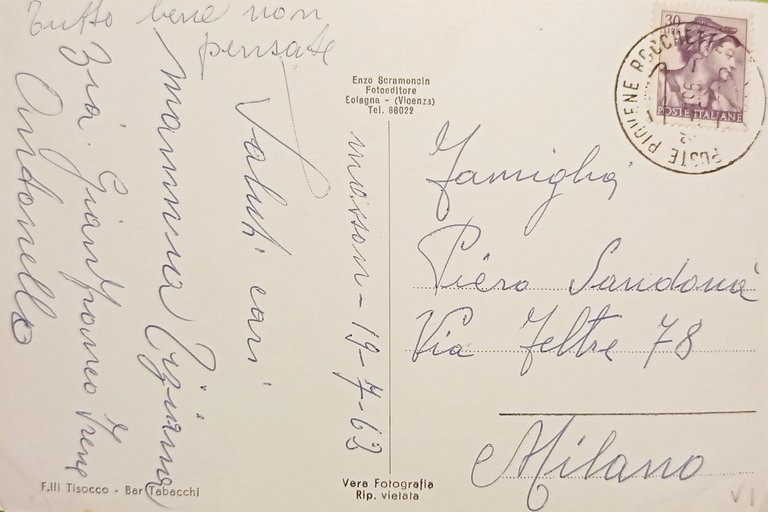 Tutto bene non
pensate
masson - 19-7-62
Saluti cari
mamma Tiziana
Zia. Gianfranco Irene
Antonello
Enzo Scramoncin
Fotoeditore
Solagna - (Vicenza)
Tel. 86022
30
POSTE ITALIANE
POSTE PIOVENE ROCCHETTE
Famiglia
Piero Sandonà
Via Feltre 78
Milano
F.lli Tisocco - Bar Tabacchi
Vera Fotografia
Rip. vietata
VI